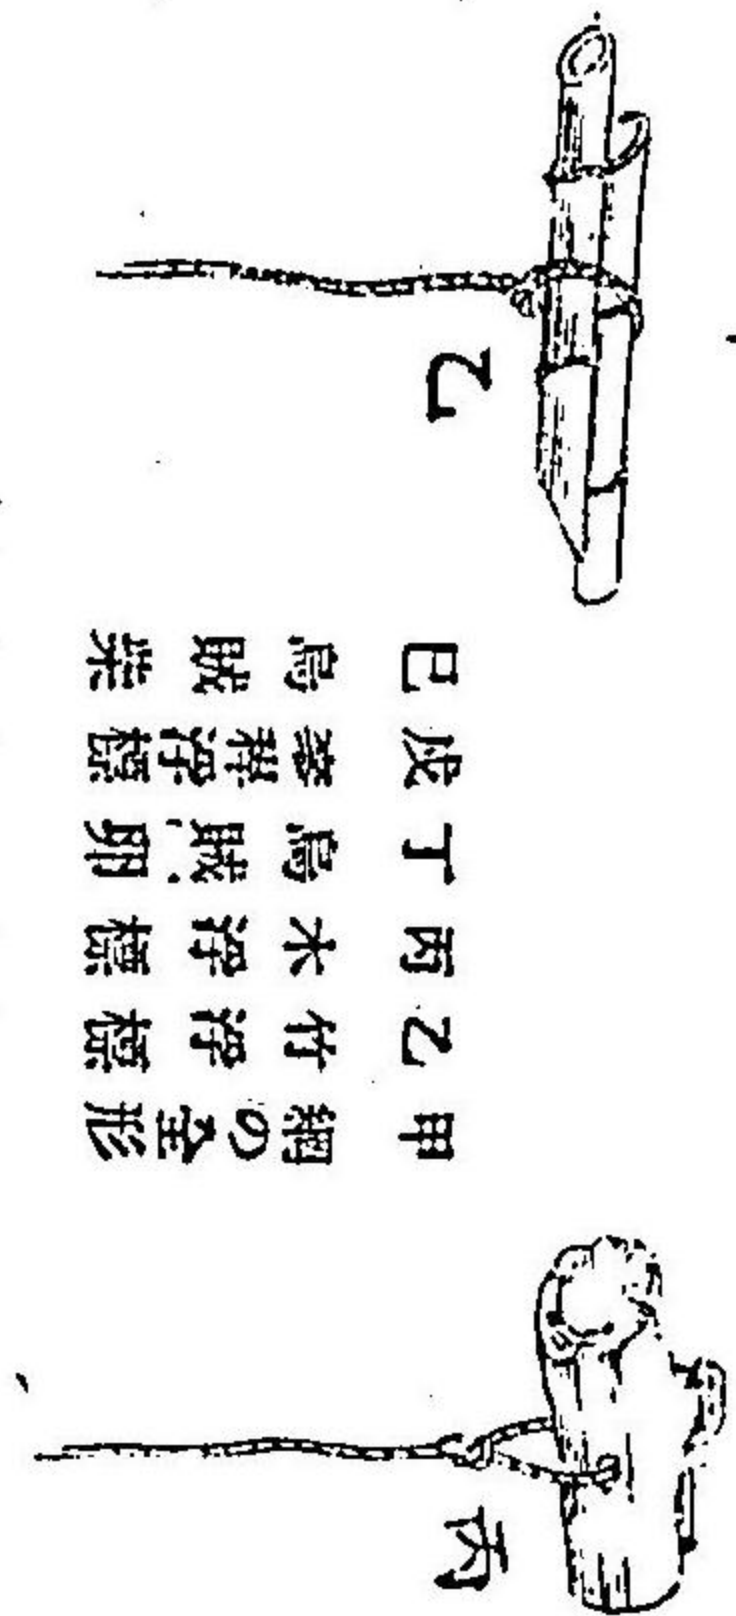 甲 網の全形
乙 竹浮標
丙 木浮標
丁 烏賊卵
戊 浮標
巳 烏賊柴
乙
丙